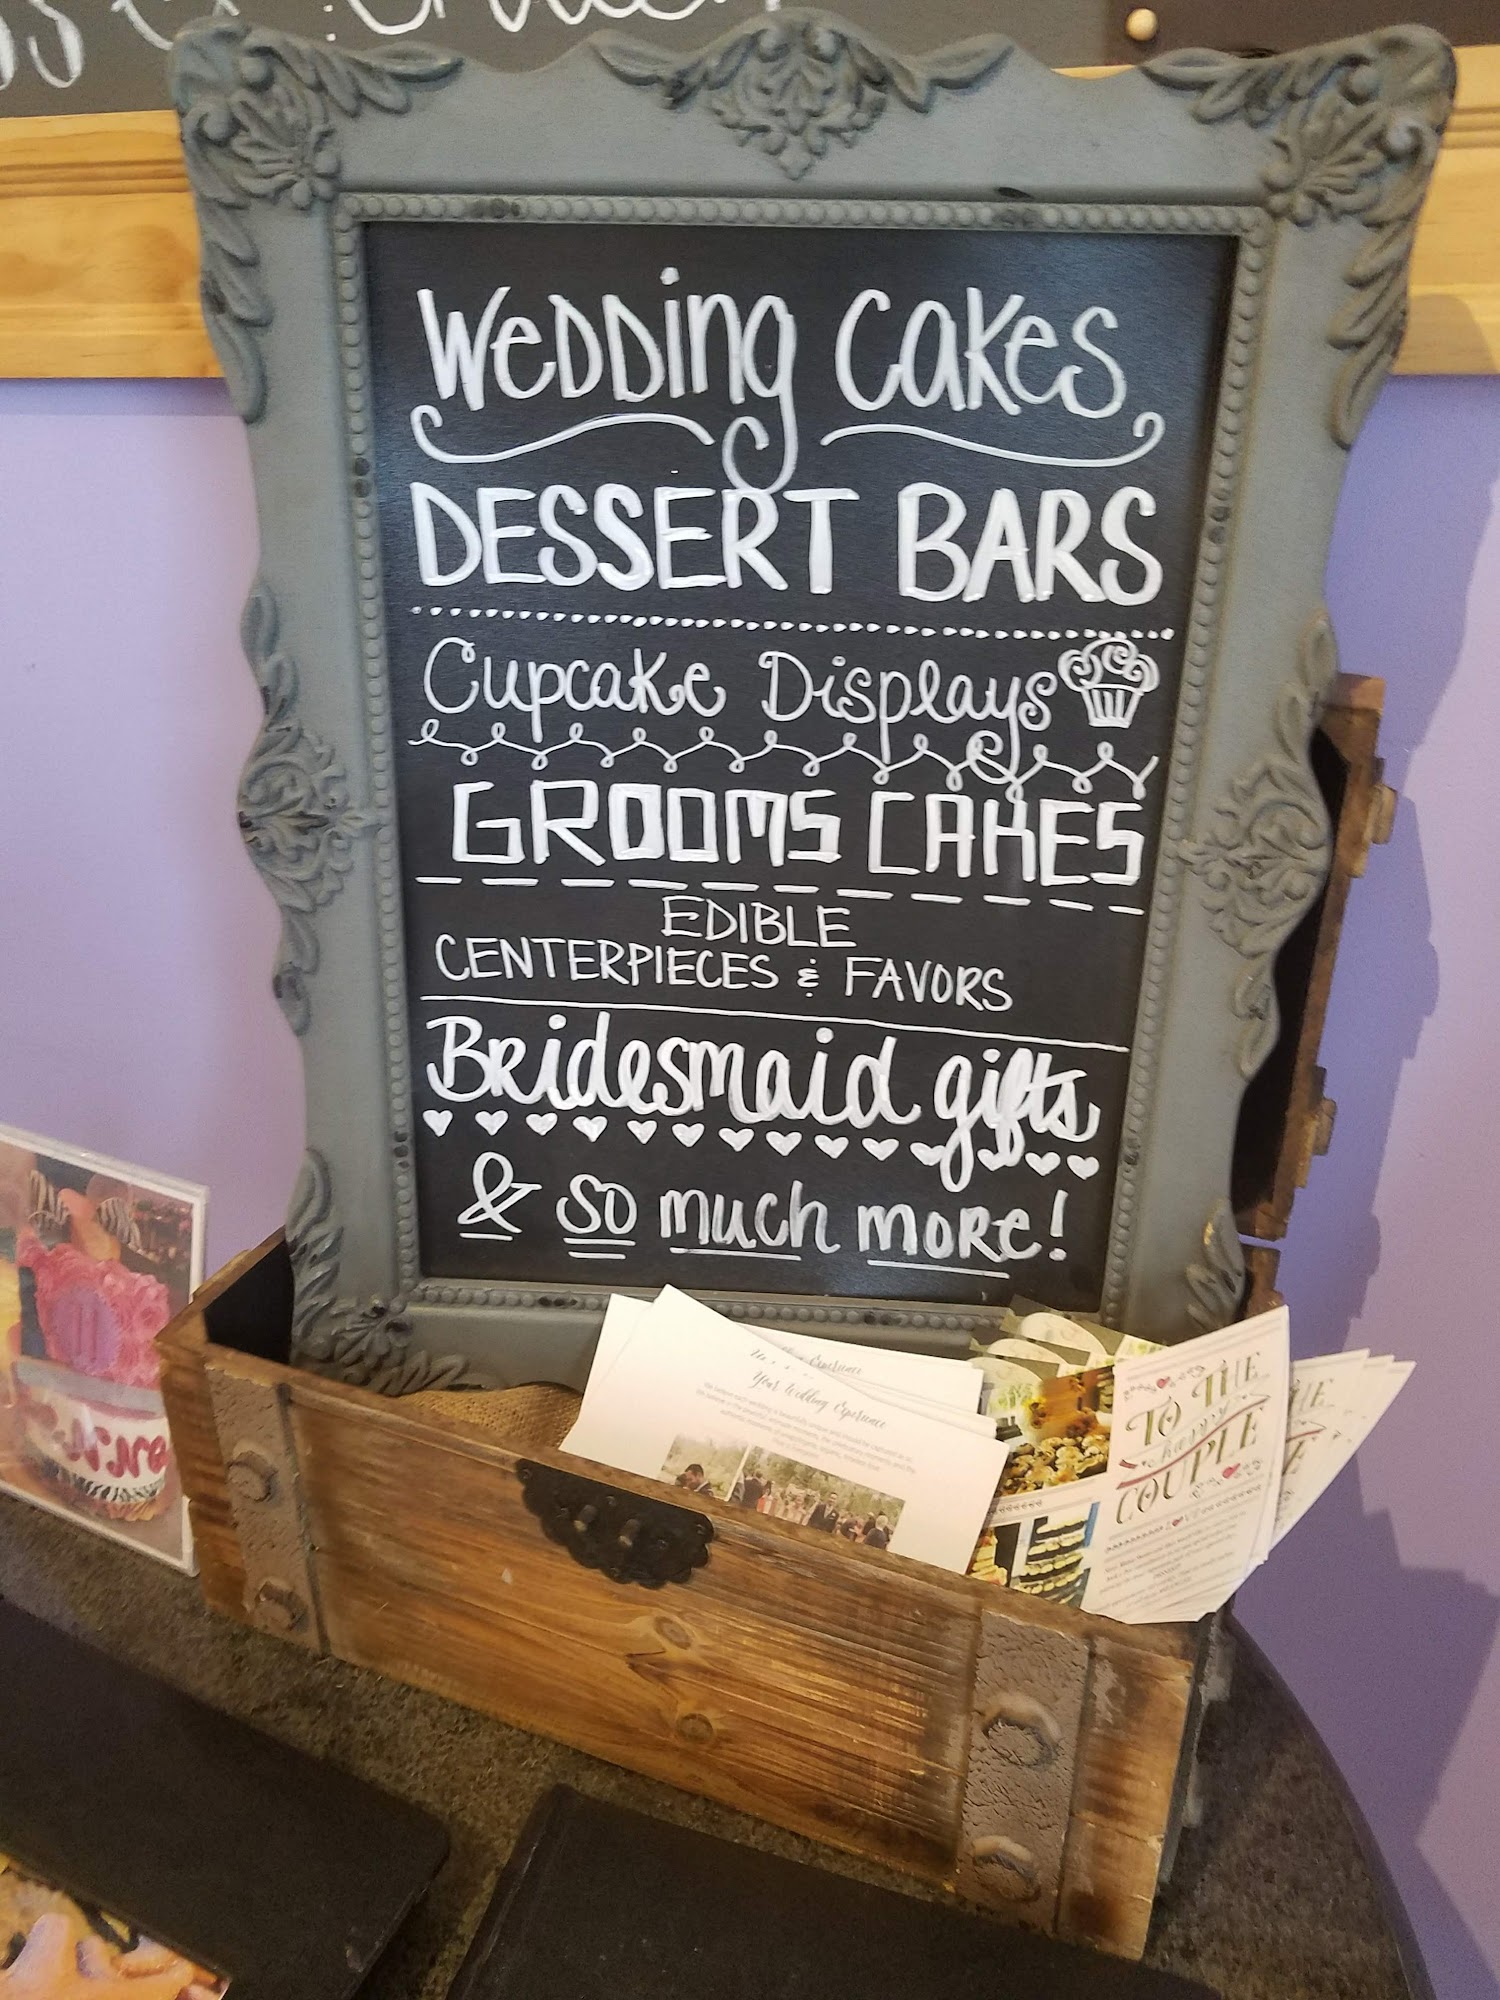 Wedding Cakes
DESSERT BARS
Cupcake Displays
GROOMS CAKES
EDIBLE
CENTERPIECES & FAVORS
Bridesmaid gifts
& so much more!
Experience
Your Wedding Experience
TO THE
happy
COUPLE
THE